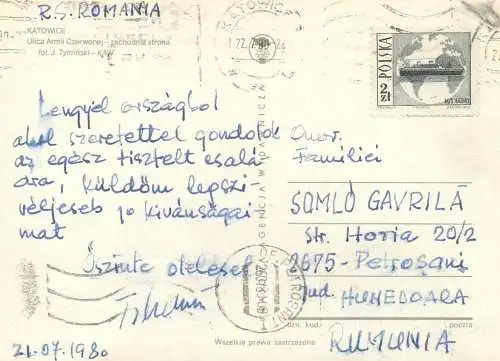 R.S. ROMANIA
KATOWICE
Ulica Armii Czerwonej — zachodnia strona
fot. J. Tymiński — KAW
KATOWICE
POLSKA
2 zł
Lengyel országbol
ahol szeretettel gondolok
az egész tisztelt csalá
dra, küldöm legszi-
véljeseb jo kivánságai
mat
Őszinte öleléssel
21.07.1980
Onor.
Familiei
SOMLÓ GAVRILĂ
str. Horia 20/2
2675 - Petroșani
jud. HUNEDOARA
RUMUNIA
dzn. kod
poczta
Wszelkie prawa zastrzeżone